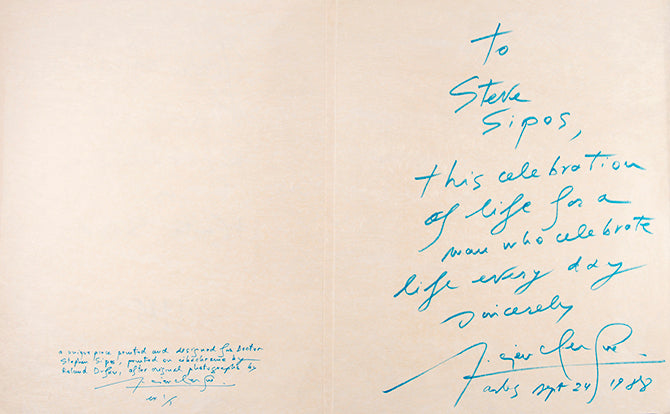 a unique piece printed and designed for doctor
Stephen Sipos, printed on cibachrome by
Roland Dufau, after original photographs by
Lucien Clergue.
n° 1/1
To
Steve
Sipos,
this celebration
of life for a
man who celebrate
life every day
sincerely
Lucien Clergue
Arles sept 24, 1988